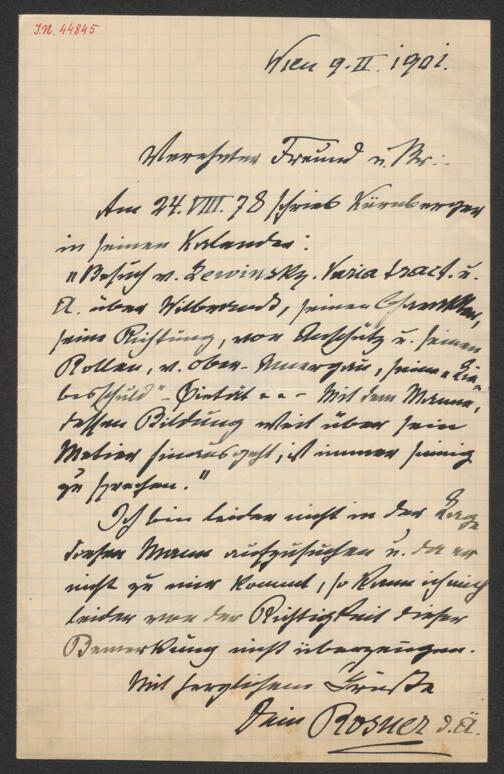 I.N. 44845
Wien 9. II. 1901.
Verehrter Freund u. Br∴
Am 24. VIII. 78 schrieb Kürnberger
in seinen Kalender:
„Besuch v. Lewinsky. Varia tract. u.
A. über Wilbrandt, seinen Charakter,
seine Richtung, von Anschütz u. seinen
Rollen, v. Ober-Amergau, seine „Lie-
besschuld" - Pietät - - - Mit dem Manne,
dessen Bildung weit über sein
Metier hinausgeht, ist immer sinnig
zu sprechen."
Ich bin leider nicht in der Lage
diesen Mann aufzusuchen u. da er
nicht zu mir kommt, so kann ich mich
leider von der Richtigkeit dieser
Bemerkung nicht überzeugen.
Mit herzlichem Gruße
Dein Rosner d. Ä.